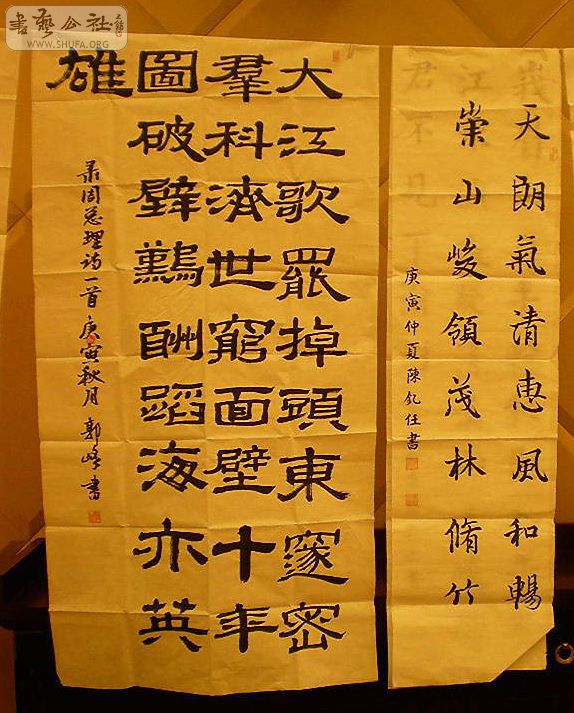 書藝公社
WWW.SHUFA.ORG
天朗氣清惠風和暢
崇山峻領茂林脩竹
庚寅仲夏陳釔任書
大江歌罷掉頭東邃密
羣科濟世窮面壁十年
圖破壁難酬蹈海亦英
雄
录周总理诗一首庚寅秋月郭峰書
君不見